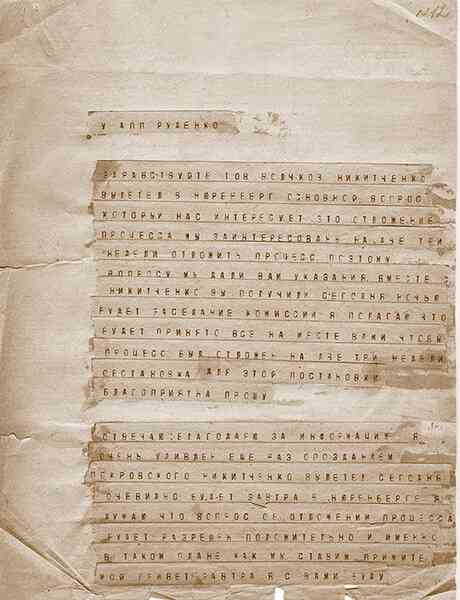 У АПП РУДЕНКО
ЗДРАВСТВУЙТЕ ТОВ ВОЛЧКОВ НИКИТЧЕНКО
ВЫЛЕТЕЛ В НЮРЕНБЕРГ ОСНОВНОЙ ВОПРОС
КОТОРЫЙ НАС ИНТЕРЕСУЕТ ЭТО ОТЛОЖЕНИЕ
ПРОЦЕССА МЫ ЗАИНТЕРЕСОВАНЫ НА ДВЕ ТРИ
НЕДЕЛИ ОТЛОЖИТЬ ПРОЦЕСС ПОЭТОМУ
ВОПРОСУ МЫ ДАЛИ ВАМ УКАЗАНИЯ ВМЕСТЕ С
НИКИТЧЕНКО ВЫ ПОЛУЧИЛИ СЕГОДНЯ НОЧЬЮ
БУДЕТ ЗАСЕДАНИЕ КОМИССИИ Я ПОЛАГАЮ ЧТО
БУДЕТ ПРИНЯТО ВСЕ НА МЕСТЕ ВАМИ ЧТОБЫ
ПРОЦЕСС БЫЛ ОТЛОЖЕН НА ДВЕ ТРИ НЕДЕЛИ
ОБСТАНОВКА ДЛЯ ЭТОЙ ПОСТАНОВКИ
БЛАГОПРИЯТНА ПРОШУ
ОТВЕЧАЮ БЛАГОДАРЮ ЗА ИНФОРМАЦИЮ Я
ОЧЕНЬ УДИВЛЕН ЕЩЕ РАЗ ОПОЗДАНИЕМ
ПОКРОВСКОГО НИКИТЧЕНКО ВЫЛЕТЕЛ СЕГОДНЯ
ОЧЕВИДНО БУДЕТ ЗАВТРА В НЮРЕНБЕРГЕ Я
ДУМАЮ ЧТО ВОПРОС ОБ ОТЛОЖЕНИИ ПРОЦЕССА
БУДЕТ РАЗРЕШЕН ПОЛОЖИТЕЛЬНО И ИМЕННО
В ТАКОМ ПЛАНЕ КАК МЫ СТАВИМ ПРИМИТЕ
МОЙ ПРИВЕТ ЗАВТРА Я С ВАМИ БУДУ